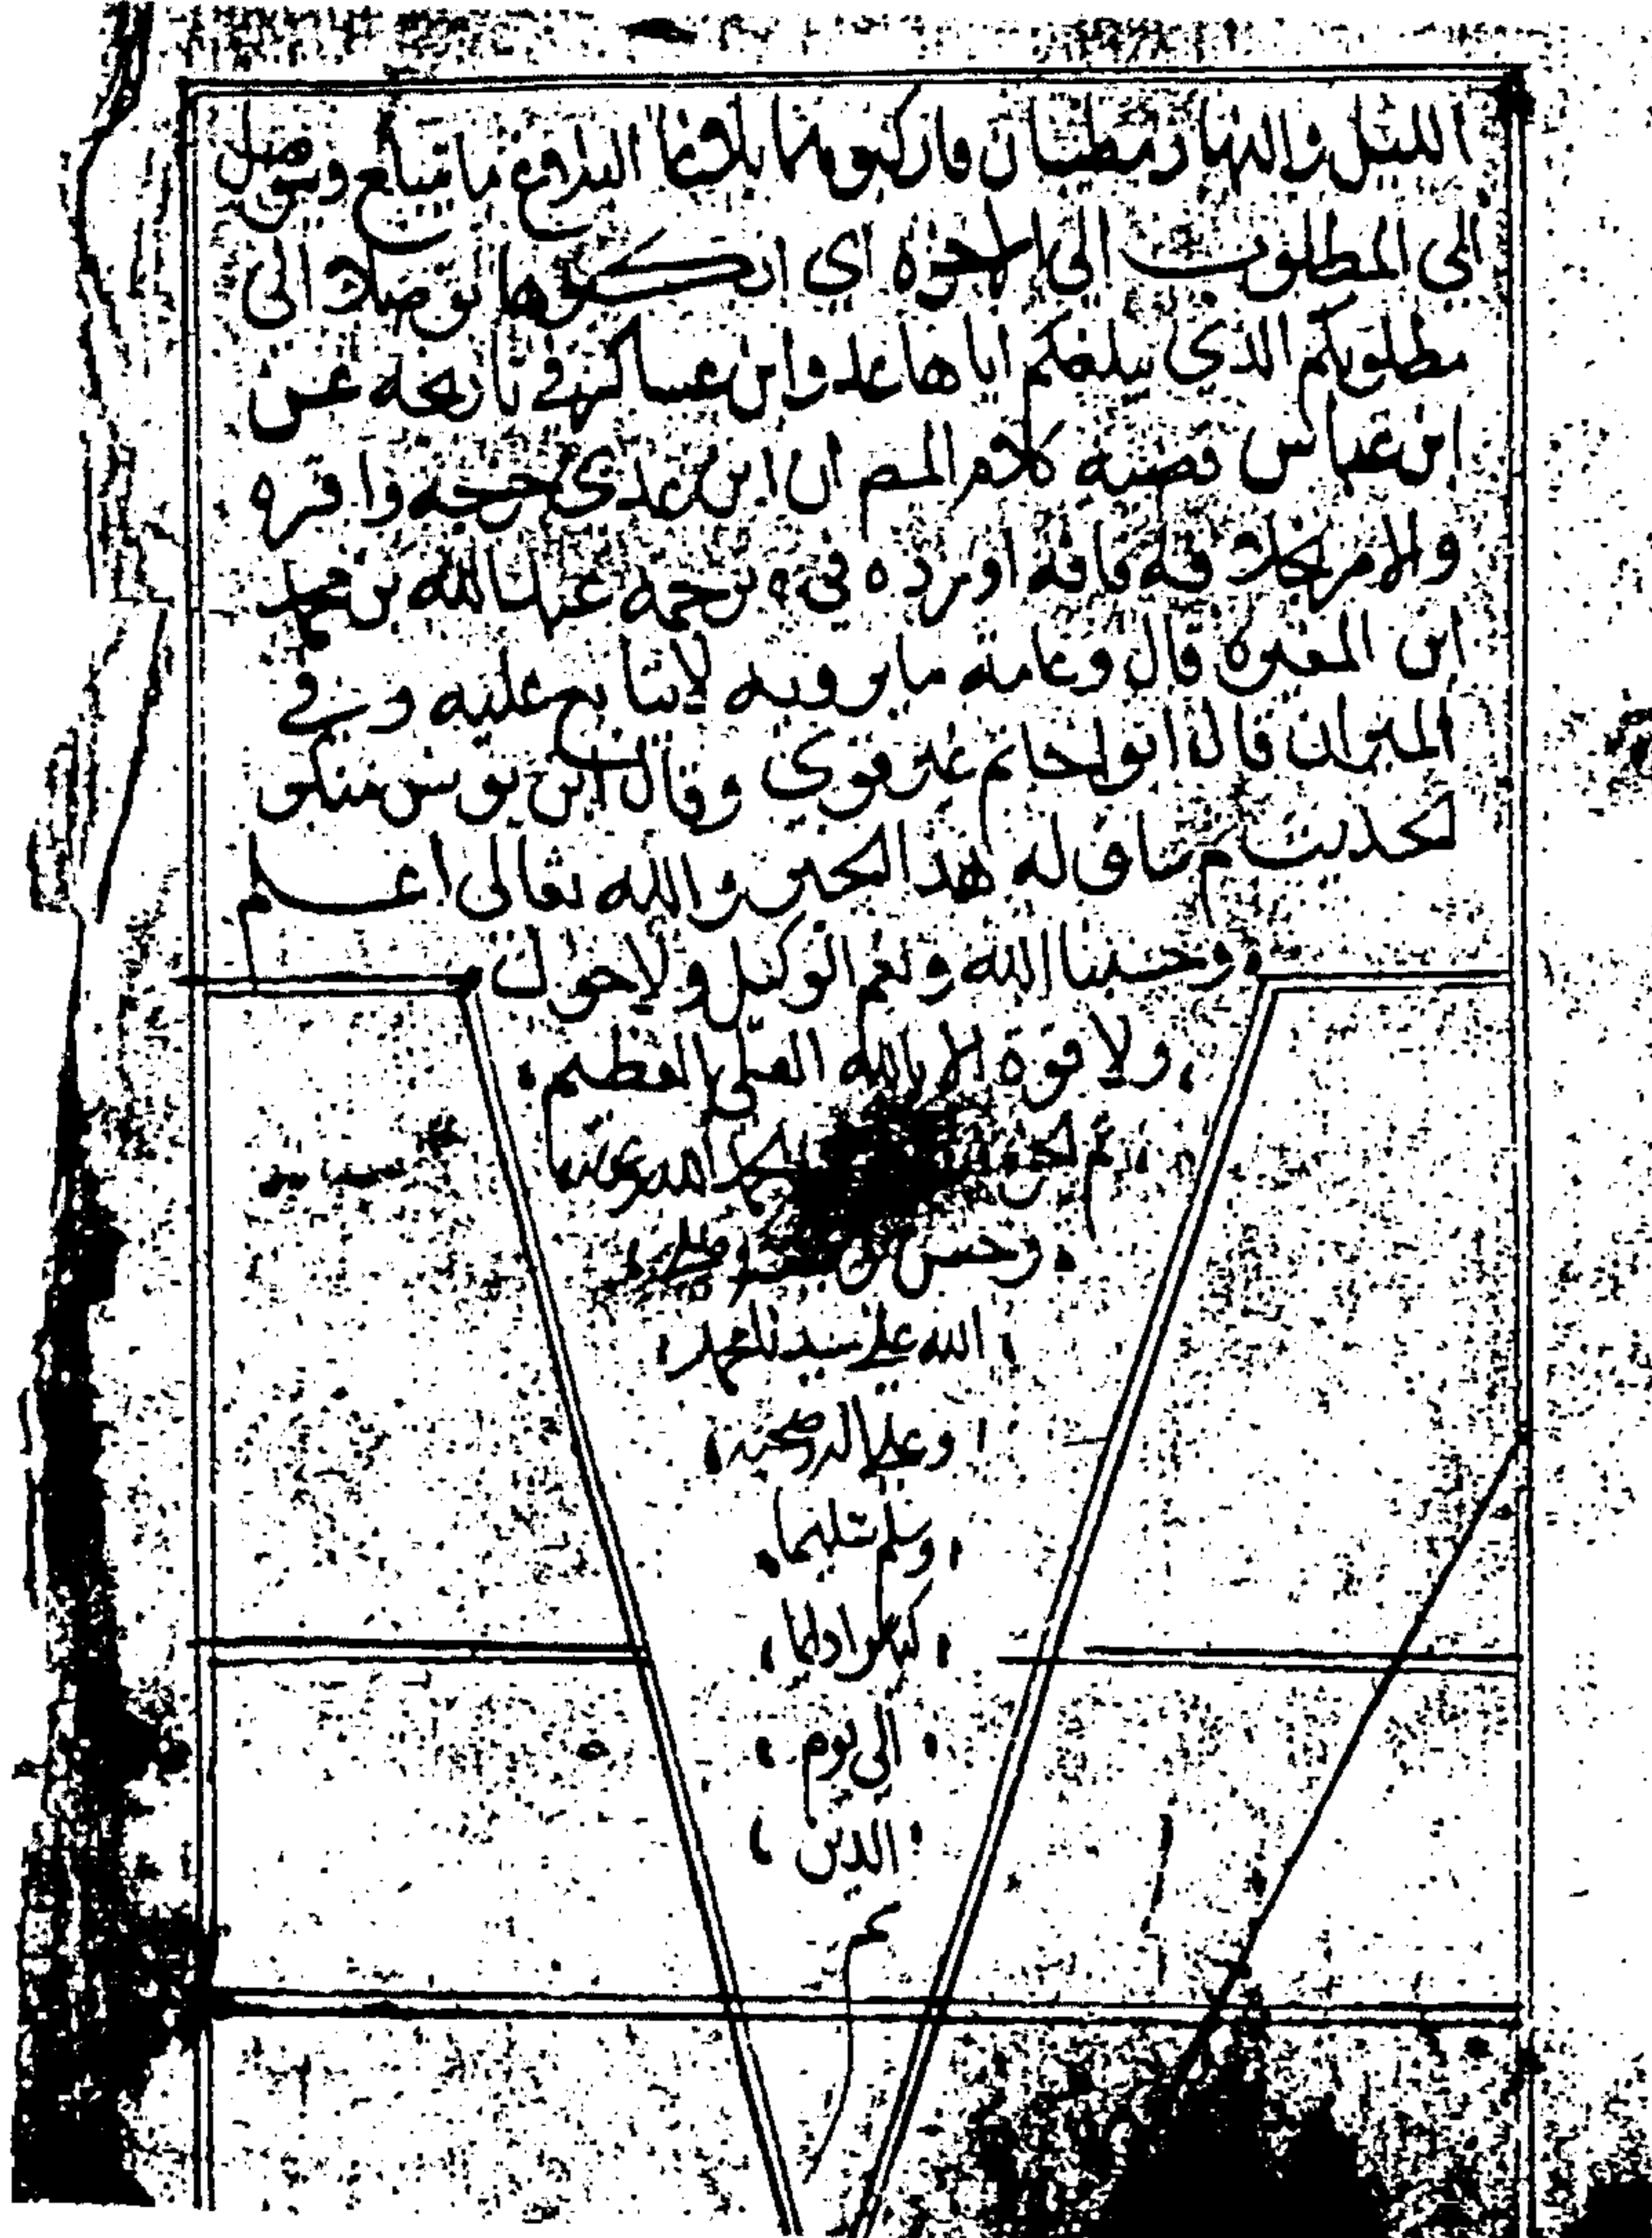 الليل والنهار مطيتان فاركبوهما بلاغا البلاغ ما يتبلغ ويتوصل
الى المطلوب الى الاخرة اي اركبوها توصلا الى
مطلوبكم الذي يبلغكم اياها عد وابن عساكر في تاريخه عن
ابن عباس قضية كلام المص ان ابن عدي خرجه واقره
والامر بخلافه فانه اورده في ترجمة عبد الله بن محمد
ابن المغيرة قال وعامة ما يرويه لا يتابع عليه وفي
الميزان قال ابو حاتم غير قوي وقال ابن يونس منكر
الحديث ثم ساق له هذا الخبر والله تعالى اعلم
وحسبنا الله ونعم الوكيل ولا حول
ولا قوة الا بالله العلي العظيم
تم الجزء الحمد لله وعونه
وحسن توفيقه وصلى
الله على سيدنا محمد
وعلى اله وصحبه
وسلم تسليما
كثيرا دايما
الى يوم
الدين
تم